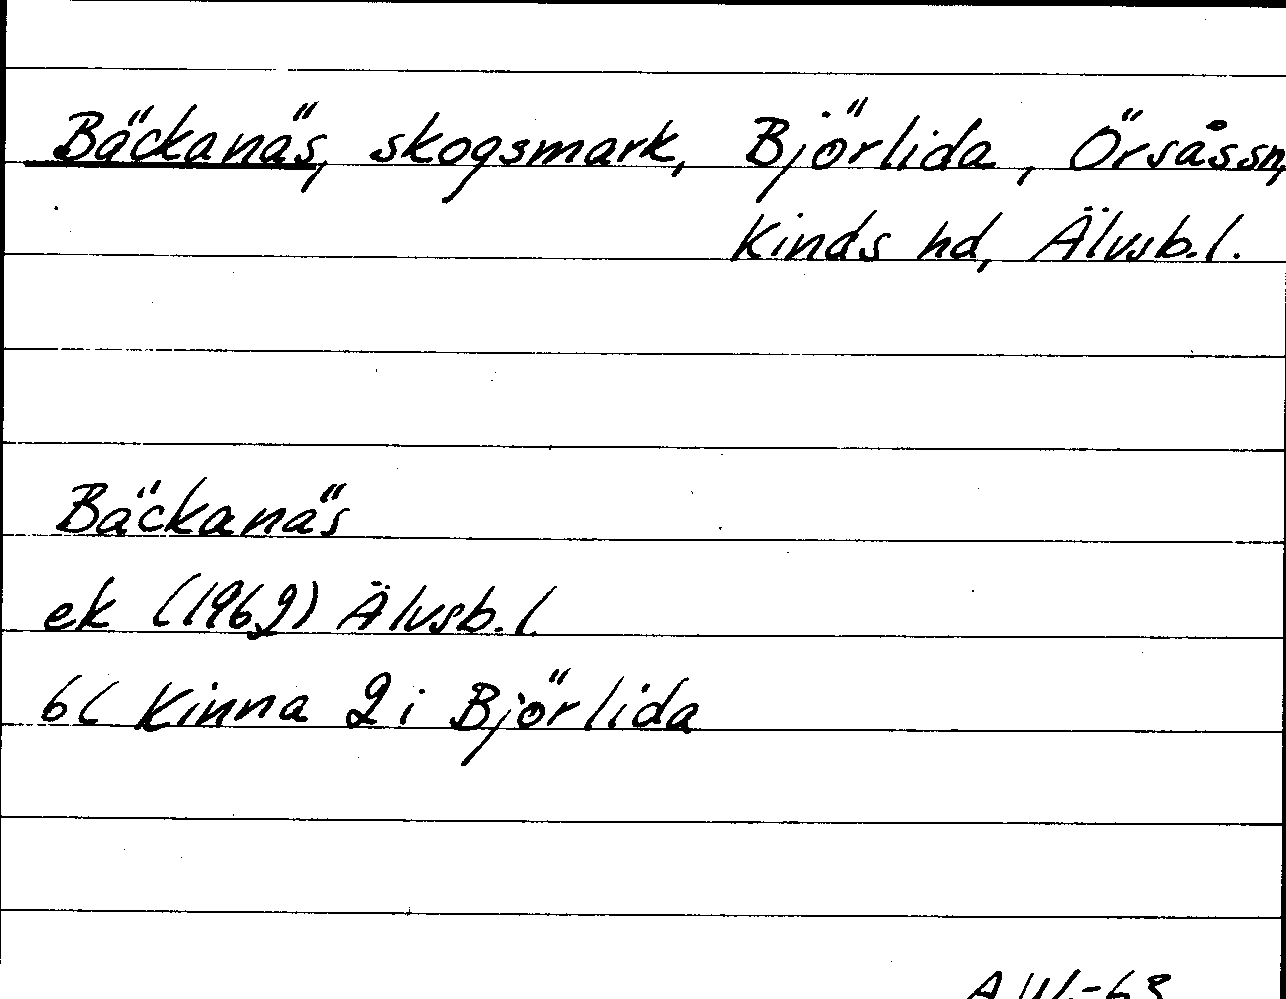 Bäckanäs, skogsmark, Björlida, Örsås sn,
Kinds hd, Älvsb. l.
Bäckanäs
ek (1962) Älvsb. l.
6C Kinna 2 i Björlida